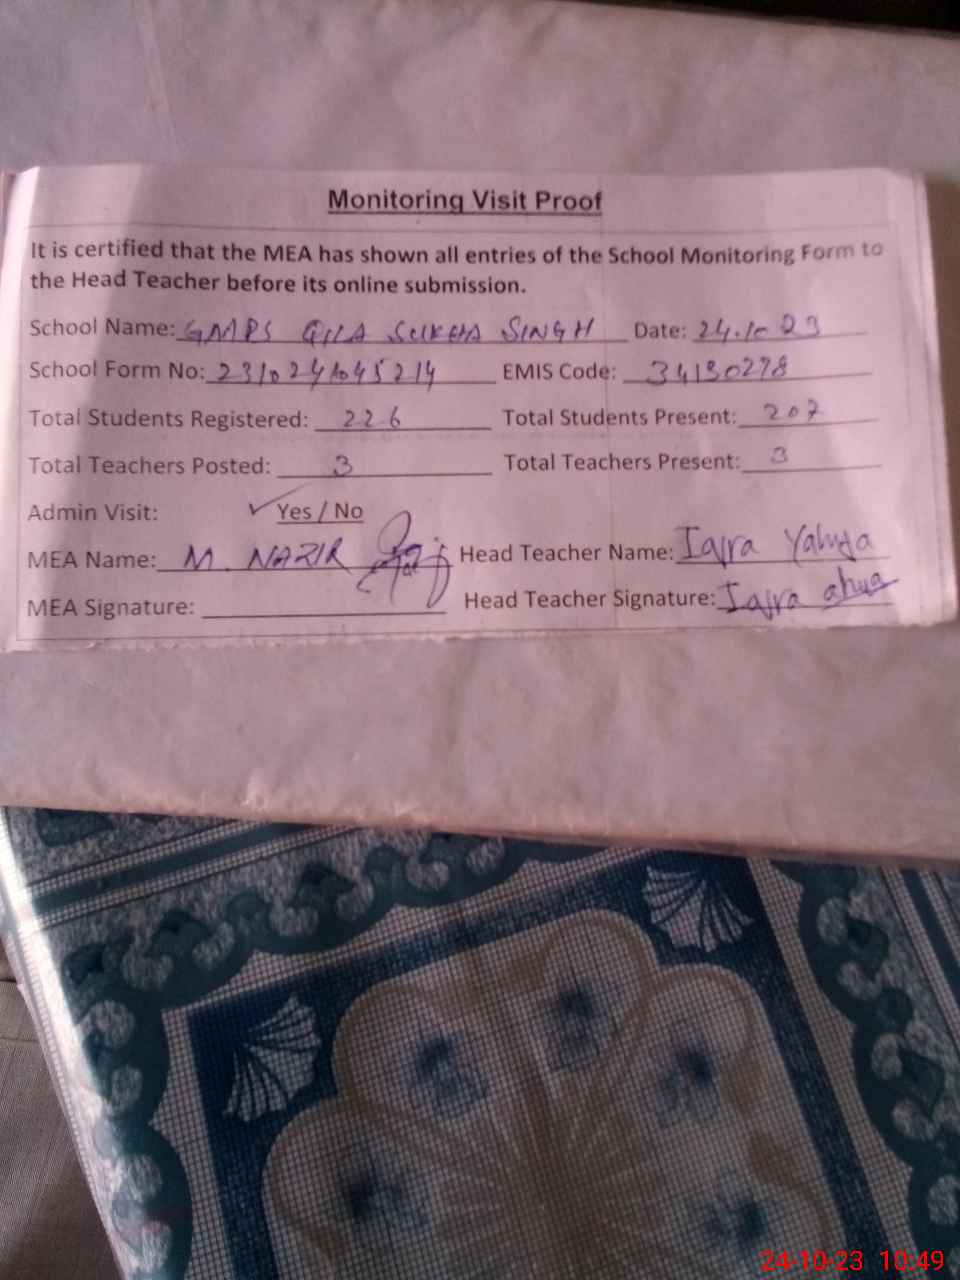 Monitoring Visit Proof
It is certified that the MEA has shown all entries of the School Monitoring Form to
the Head Teacher before its online submission.
School Name: GMPS QILA SUKHA SINGH Date: 24.10 23
School Form No: EMIS Code: 34130278
Total Students Registered: 226 Total Students Present: 207
Total Teachers Posted: 3 Total Teachers Present: 3
Admin Visit: Yes / No
MEA Name: M. NAZIR Head Teacher Name: Iqra Yahya
MEA Signature: Head Teacher Signature: Iqra
24-10-23 10:49